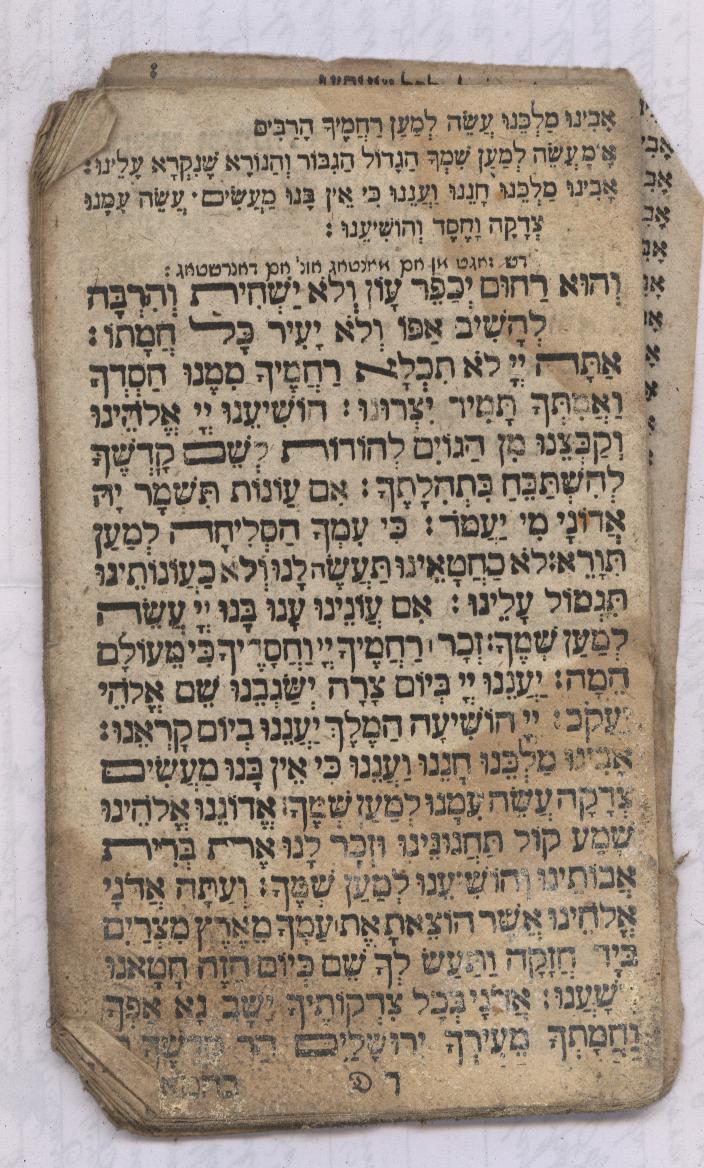 אָבִינוּ מַלְכֵּנוּ עֲשֵׂה לְמַעַן רַחֲמֶיךָ הָרַבִּים
א״מ עֲשֵׂה לְמַעַן שִׁמְךָ הַגָדוֹל הַגִבּוֹר וְהַנוֹרָא שֶׁנִקְרָא עָלֵינוּ׃
אָבִינוּ מַלְכֵּנוּ חָנֵנוּ וַעֲנֵנוּ כִּי אֵין בָּנוּ מַעֲשִׂים · עֲשֵׂה עִמָנוּ
צְדָקָה וָחֶסֶד וְהוֹשִׁיעֵנוּ׃
דש זאגט מן אם מאנטאג אונ׳ אם דאנרשטאג׃
וְהוּא רַחוּם יְכַפֵּר עָוֹן וְלֹא יַשְׁחִית וְהִרְבָּה
לְהָשִׁיב אַפּוֹ וְלֹא יָעִיר כָּל חֲמָתוֹ׃
אַתָּה יְיָ לֹא תִכְלָא רַחֲמֶיךָ מִמֶנוּ חַסְדְךָ
וַאֲמִתְּךָ תָּמִיד יִצְרוּנוּ׃ הוֹשִׁיעֵנוּ יְיָ אֱלֹהֵינוּ
וְקַבְּצֵנוּ מִן הַגוֹיִם לְהוֹדוֹת לְשֵׁם קָדְשֶׁךָ
לְהִשְׁתַּבֵּחַ בִּתְהִלָתֶךָ׃ אִם עֲוֹנוֹת תִּשְׁמָר יָהּ
אֲדוֹנָי מִי יַעֲמֹד׃ כִּי עִמְךָ הַסְלִיחָה לְמַעַן
תִּוָרֵא׃ לֹא כַחֲטָאֵינוּ תַּעֲשֶׂה לָנוּ וְלֹא כַעֲוֹנוֹתֵינוּ
תִּגְמוֹל עָלֵינוּ׃ אִם עֲוֹנֵינוּ עָנוּ בָנוּ יְיָ עֲשֵׂה
לְמַעַן שְׁמֶךָ׃ זְכָר רַחֲמֶיךָ יְיָ וַחֲסָדֶיךָ כִּי מֵעוֹלָם
הֵמָה׃ יַעֲנֵנוּ יְיָ בְּיוֹם צָרָה יְשַׂגְבֵנוּ שֵׁם אֱלֹהֵי
יַעֲקֹב׃ יְיָ הוֹשִׁיעָה הַמֶלֶךְ יַעֲנֵנוּ בְיוֹם קָרְאֵנוּ׃
אָבִינוּ מַלְכֵּנוּ חָנֵנוּ וַעֲנֵנוּ כִּי אֵין בָּנוּ מַעֲשִׂים
צְדָקָה עֲשֵׂה עִמָנוּ לְמַעַן שְׁמֶךָ׃ אֲדוֹנֵנוּ אֱלֹהֵינוּ
שְׁמַע קוֹל תַּחֲנוּנֵינוּ וּזְכָר לָנוּ אֶת בְּרִית
אֲבוֹתֵינוּ וְהוֹשִׁיעֵנוּ לְמַעַן שְׁמֶךָ׃ וְעַתָּה אֲדֹנָי
אֱלֹהֵינוּ אֲשֶׁר הוֹצֵאתָ אֶת עַמְךָ מֵאֶרֶץ מִצְרַיִם
בְּיָד חֲזָקָה וַתַּעַשׂ לְךָ שֵׁם כַּיוֹם הַזֶה חָטָאנוּ
רָשָׁעְנוּ׃ אֲדֹנָי בְּכָל צִדְקוֹתֶיךָ יָשָׁב נָא אַפְּךָ
וַחֲמָתְךָ מֵעִירְךָ יְרוּשָׁלַיִם הַר קָדְשֶׁךָ